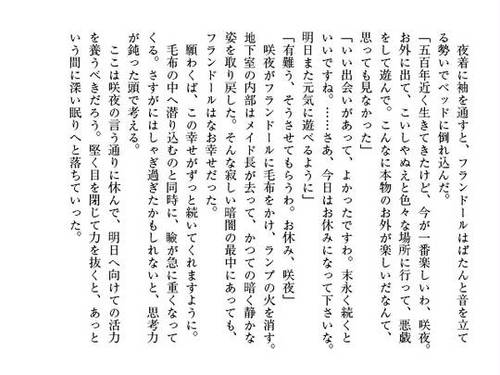 夜着に袖を通すと、フランドールはばたんと音を立て
る勢いでベッドに倒れ込んだ。
「五百年近く生きてきたけど、今が一番楽しいわ、咲夜。
お外に出て、こいしやぬえと色々な場所に行って、悪戯
をして遊んで。こんなに本物のお外が楽しいだなんて、
思っても見なかった」
「いい出会いがあって、よかったですわ。末永く続くと
いいですね。……さあ、今日はお休みになって下さいな。
明日また元気に遊べるように」
「有難う、そうさせてもらうわ。お休み、咲夜」
　咲夜がフランドールに毛布をかけ、ランプの火を消す。
地下室の内部はメイド長が去って、かつての暗く静かな
姿を取り戻した。そんな寂しい暗闇の最中にあっても、
フランドールはなお幸せだった。
　願わくば、この幸せがずっと続いてくれますように。
　毛布の中へ潜り込むのと同時に、瞼が急に重くなって
くる。さすがにはしゃぎ過ぎたかもしれないと、思考力
が鈍った頭で考える。
　ここは咲夜の言う通りに休んで、明日へ向けての活力
を養うべきだろう。堅く目を閉じて力を抜くと、あっと
いう間に深い眠りへと落ちていった。